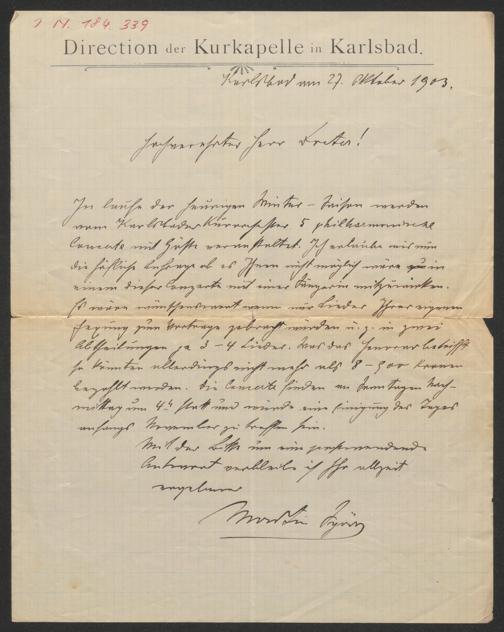 I. N. 184.339
Direction der Kurkapelle in Karlsbad.
Karlsbad am 27. Oktober 1903.
Hochverehrter Herr Doctor!
Im Laufe der heurigen Winter-Saison werden
vom Karlsbader Kurorchester 5 philharmonische
Concerte mit Gäste veranstaltet. Ich erlaube mir nun
die höfliche Anfrage ob es Ihnen nicht möglich wäre in
einem dieser Concerte mit einer Sängerin mitzuwirken.
Es wäre wünschenswert wenn nur Lieder Ihrer eigenen
zum Vortrage gebracht würden u. z. in zwei
Abtheilungen je 3-4 Lieder. Was das Honorar betrifft
so könnten allerdings nicht mehr als 8-900 Kronen
bezahlt werden. Die Concerte finden an Sonntagen Nach-
mittag um 4h statt und würde eine Einigung des Tages
anfangs November zu treffen sein.
Mit der Bitte um eine
Antwort verbleibe ich Ihr allzeit
ergebener
Martin Spörr